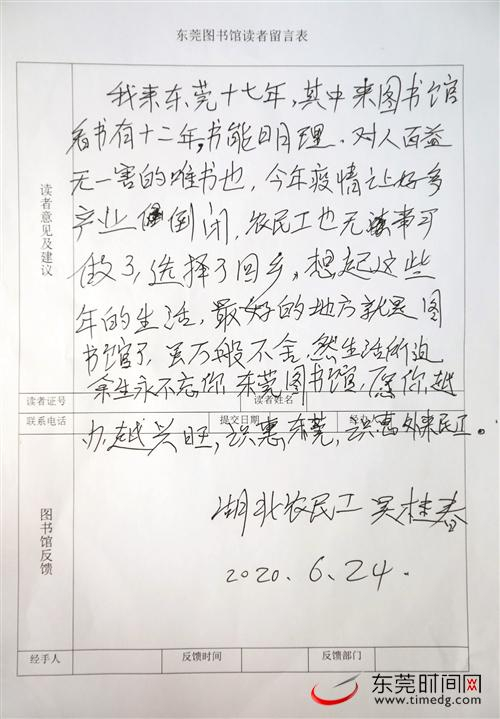 东莞图书馆读者留言表
读者意见及建议
我来东莞十七年，其中来图书馆
看书有十二年，书能明理、对人百益
无一害的唯书也，今年疫情让好多
产业倒闭，农民工也无事可
做了，选择了回乡，想起这些
年的生活，最好的地方就是图
书馆了，虽万般不舍，然生活所迫
余生永不忘你东莞图书馆，愿你越
办越兴旺，识惠东莞，识惠外来民工。
读者证号 读者姓名
联系电话 提交日期 经办人
图书馆反馈
湖北农民工 吴桂春
2020.6.24.
经手人 反馈时间 反馈部门
东莞时间网
www.timedg.com